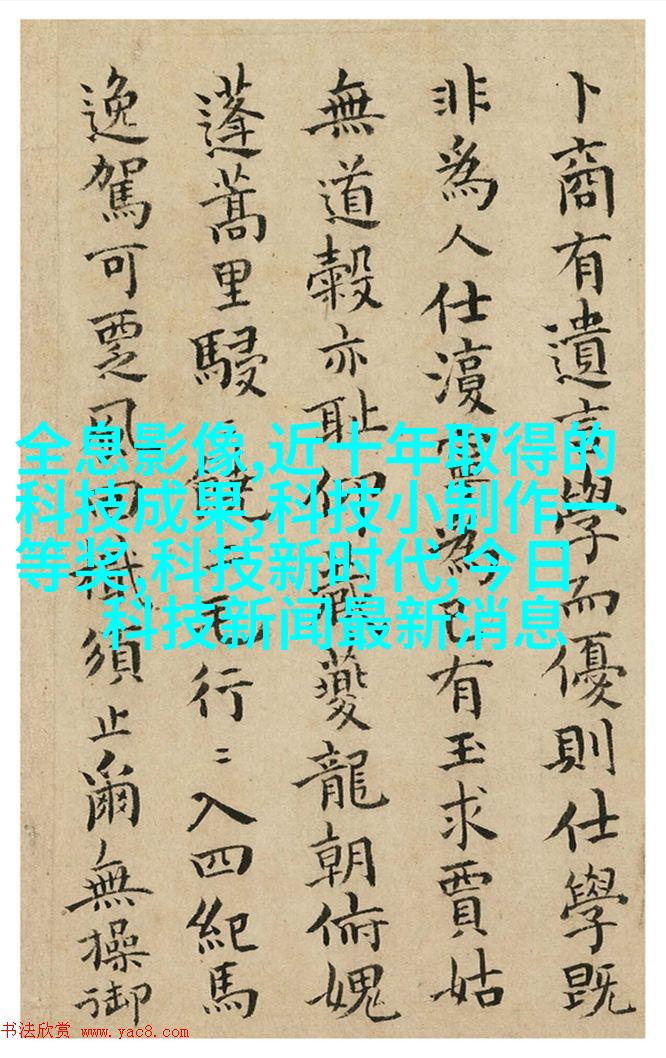 卜商有遺言學而優則仕學既
非為人仕寖為己有玉求賈姑
無道穀亦恥夔龍朝俯媿
蓬蒿里駸毛行〻入四紀馬
逸駕可覂風須止爾無操御
全息影像,近十年取得的
科技成果,科技小制作一
等奖,科技新时代,今日
科技新闻最新消息
书法欣赏 www.yac8.com